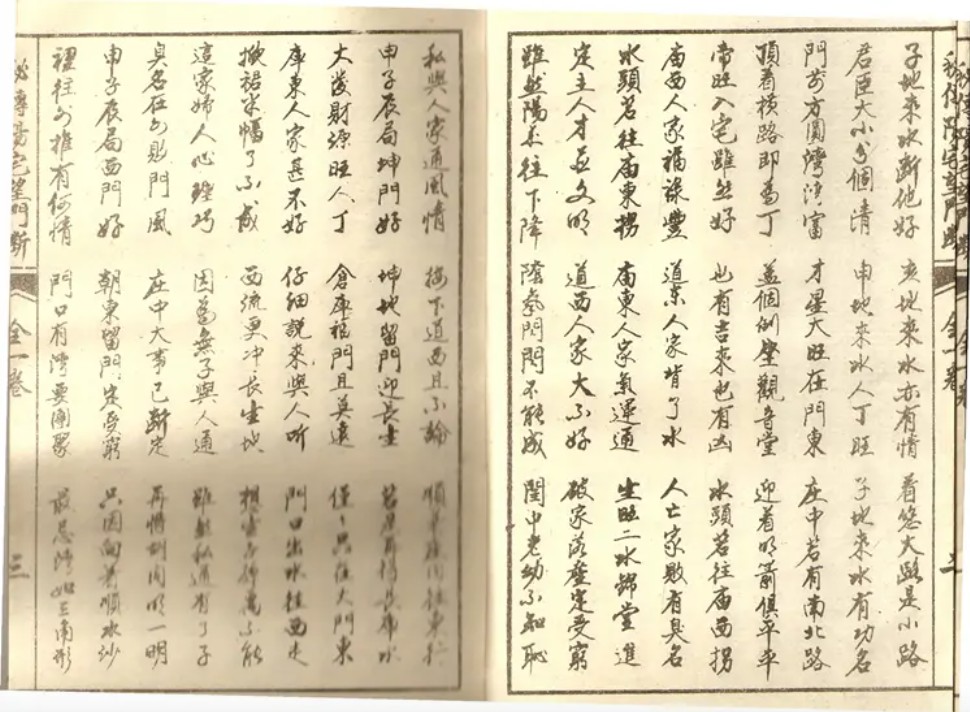 子地来水断他好 亥地来水亦有情 着您大路是小路
君臣大小分個清 申地来水人丁旺 子地来水有功名
門前方圓灣清富 才星大旺在門東 庄中若有南北路
頂着横路即為丁 蓋個倒座觀音堂 迎着明箭俱平平
帝旺入宅雖然好 也有吉来也有凶 水頭若往庙西拐
庙西人家福禄豐 道东人家背了水 人亡家敗有臭名
水頭若往庙東拐 庙東人家氣運通 生旺二水歸堂進
定主人才并文明 道西人家大不好 破家落產定受窮
雖然陽气往下降 陰氣悶悶不能成 閨中老幼不知恥
私與人家通風情 接下道西且不論 順
申子辰局坤門好 坤地留門迎長生 水
大發財源旺人丁 倉庫福門且莫遠 僅僅只在大門東
庫東人家甚不好 仔細説来與人听 門口出水往西走
掀裙米幅了不成 西流更冲長生地
這家婦人心靈巧 因為無子與人通 雖然私通有了子
臭名在外敗門風 庄中大事已断定 再將 一明
申子辰局西門好 朝東留門定受窮 只因向着順水沙
裡往外推有何情 門口有灣要團聚 最忌灣如三角形
秘傳陽宅望門断 全一卷 三